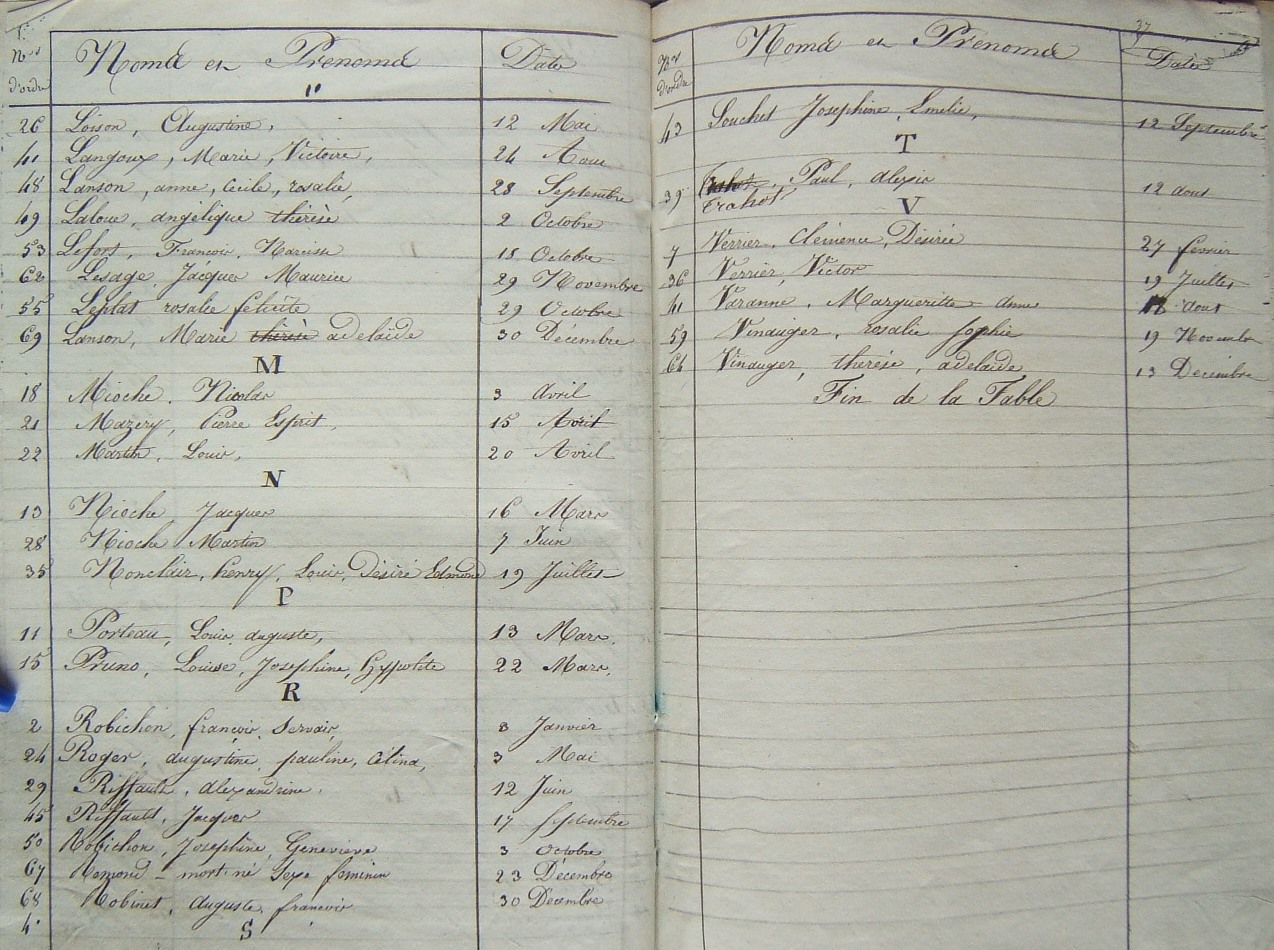 Nos d'ordre Noms et Prenoms Date
"
26 Loison, Augustine, 12 Mai
41 Langoux, Marie, Victoire, 24 Aout
48 Lanson, anne, Cécile, rosalie, 28 Septembre
49 Laloue, angélique thérèse 2 Octobre
53 Lefort, Francois, Narcisse 18 Octobre
62 Lesage, Jacques Maurice 29 Novembre
55 Leplat rosalie félicité 29 Octobre
69 Lanson, Marie thérèse adelaïde 30 Décembre
M
18 Mioche, Nicolas 3 Avril
21 Mazery, Pierre Esprit, 15 Avril
22 Martin, Louis, 20 Avril
N
13 Nioche Jacques 16 Mars
28 Nioche Martin 7 Juin
35 Nonclair, henry, Louis, Désiré Edmond 19 Juillet
P
11 Porteau, Louis auguste, 13 Mars,
15 Pruno, Louise, Josephine, hyppolite 22 Mars,
R
2 Robichon, francois, Servais, 8 Janvier
24 Roger, augustine, pauline, Célina, 3 Mai
29 Riffault, alexandrine, 12 Juin
45 Riffault, Jacques 17 septembre
50 Robichon, Josephine, Genevieve 3 Octobre
67 Remond - mort-né Sexe féminin 23 Décembre
68 Robinet, Auguste, francois 30 Decembre
4
S
37
Nos d'ordre Noms et Prenoms Dates
43 Souchet Josephine, Emelie, 12 Septembre
T
39 Paul, alexis 12 aout
Trahot
V
7 Verrier, Clémence, Désirée 27 février
36 Verrier, Victor 19 Juillet
41 Varanne, Margueritte anne 18 aout
59 Vinauger, rosalie sophie 19 Novembre
64 Vinauger, thérése, adelaide 13 Decembre
Fin de la Table